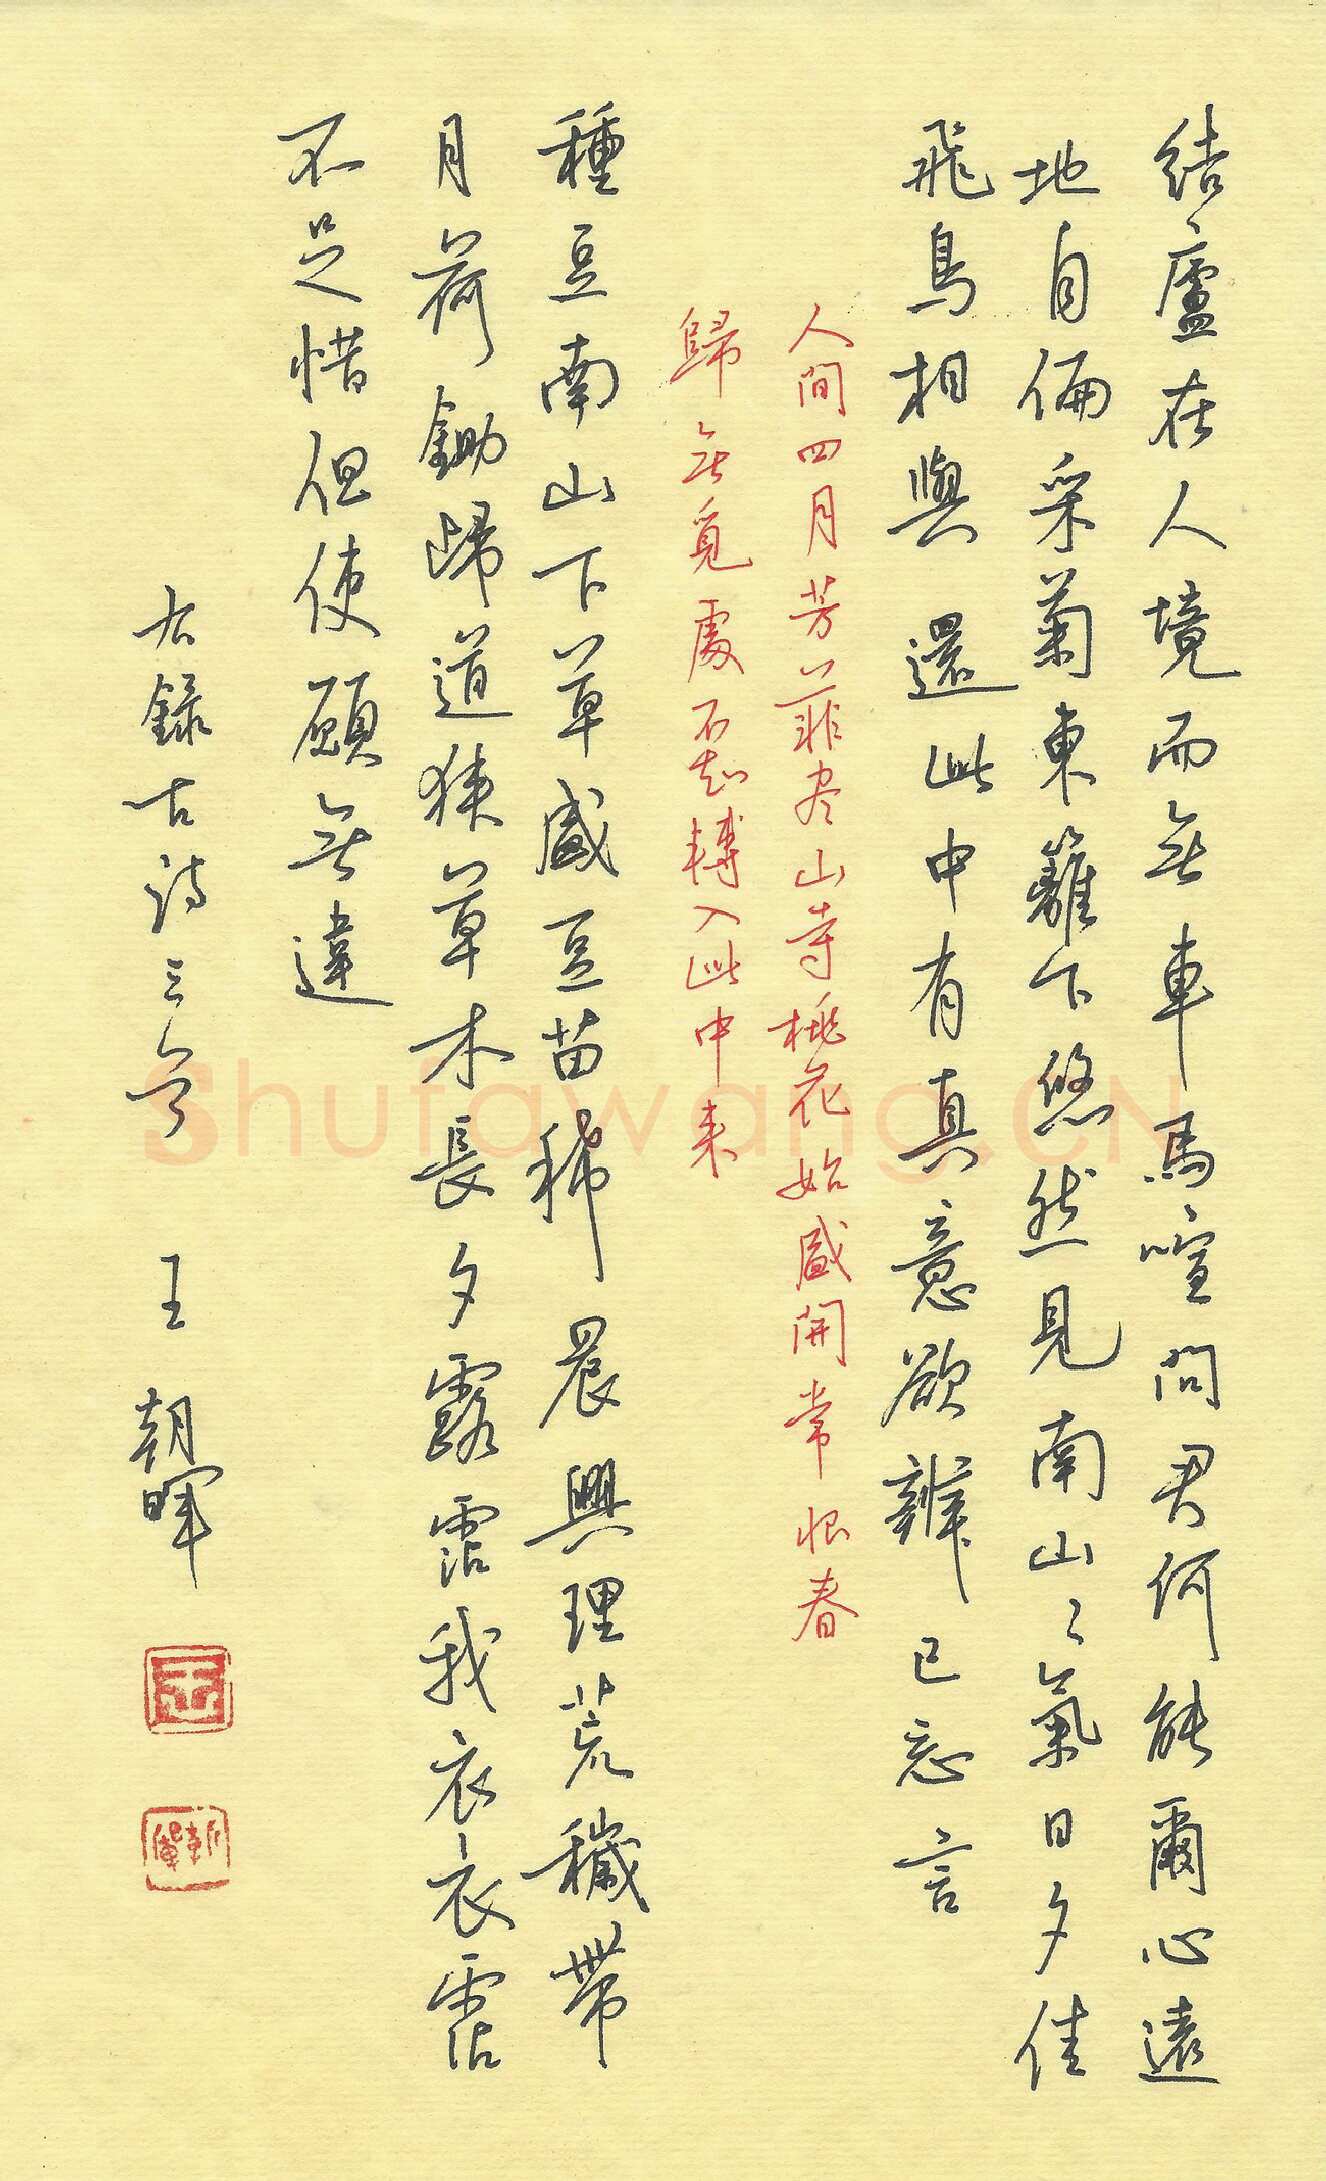 結廬在人境而無車馬喧問君何能爾心遠
地自偏采菊東籬下悠然見南山々氣日夕佳
飛鳥相與還此中有真意欲辨已忘言
人間四月芳菲尽山寺桃花始盛開常恨春
歸無覓處不知轉入此中来
種豆南山下草盛豆苗稀晨興理荒穢帶
月荷鋤歸道狹草木長夕露霑我衣衣霑
不足惜但使願無違
右録古詩三首 王朝暉
王
Shufawang.CN